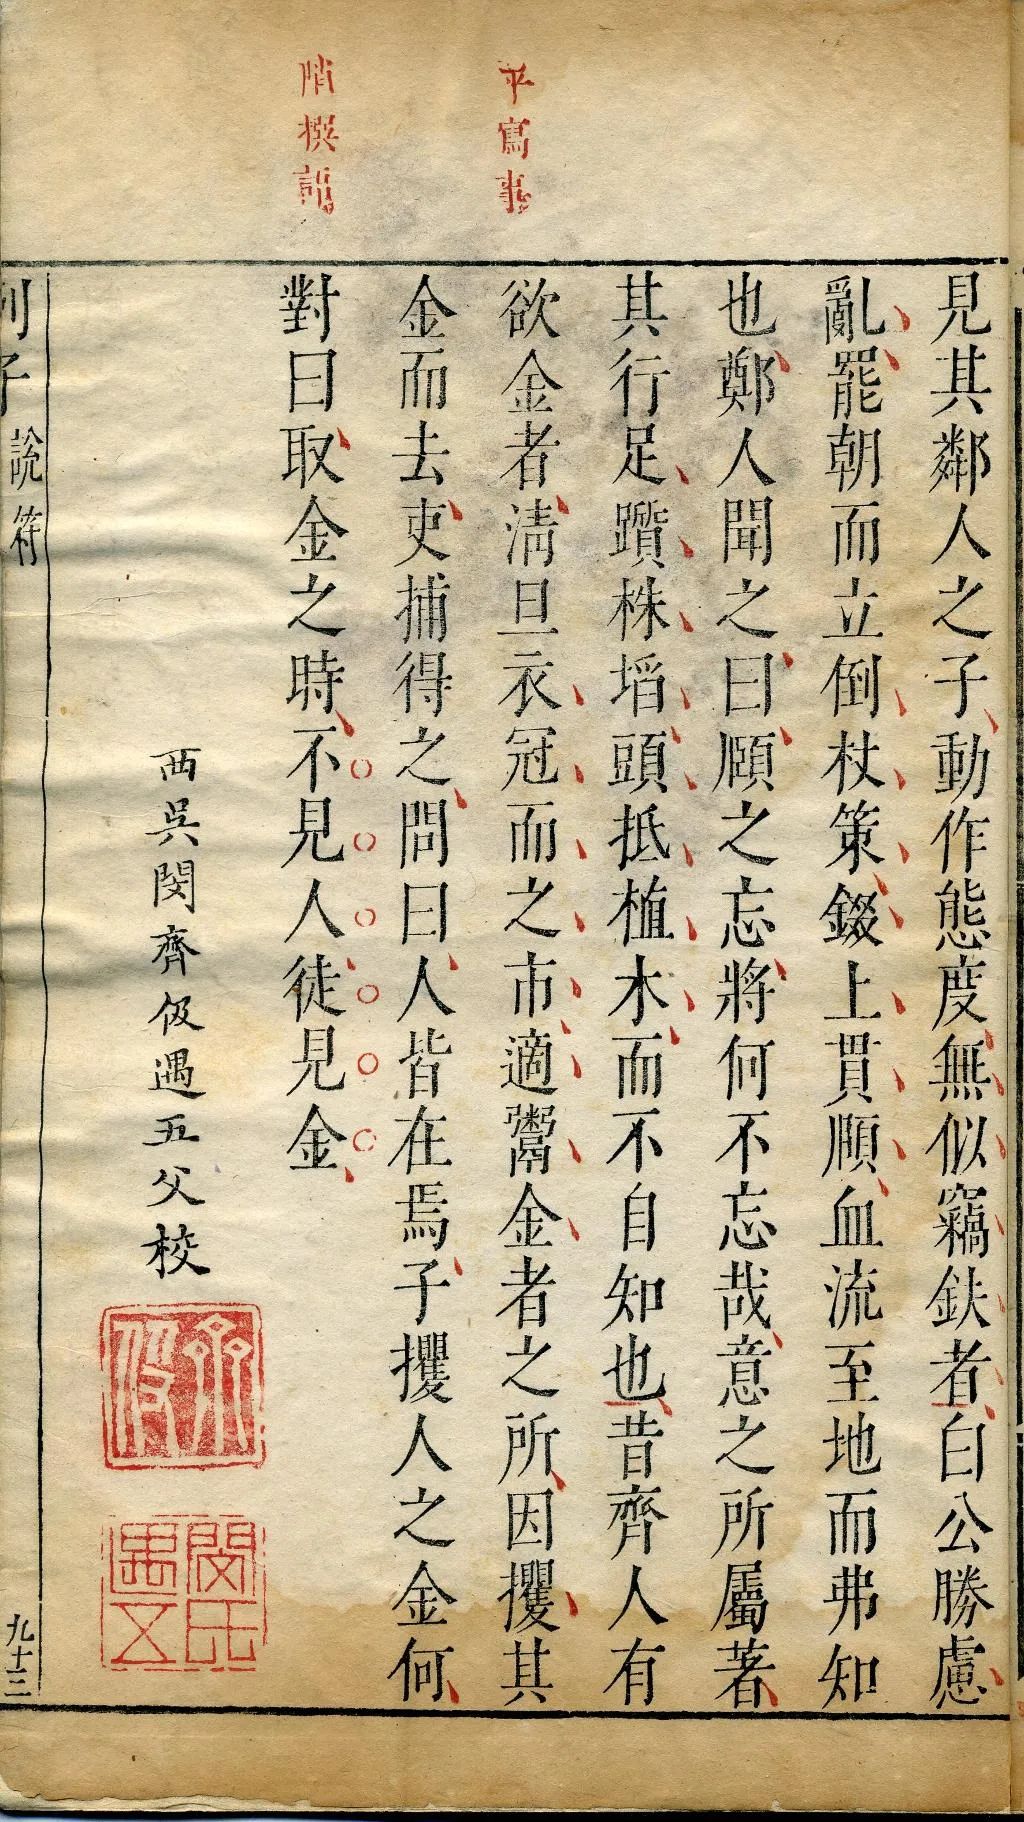 平寫事
見其鄰人之子動作態度無似竊鈇者白公勝慮
亂罷朝而立倒杖策錣上貫頤血流至地而弗知
也鄭人聞之曰頤之忘將何不忘哉意之所屬著
其行足躓株埳頭抵植木而不自知也昔齊人有
欲金者清旦衣冠而之市適鬻金者之所因攫其
金而去吏捕得之問曰人皆在焉子攫人之金何
對曰取金之時不見人徒見金
西吳閔齊伋遇五父校
齊伋
閔氏遇五
列子 說符 九十二